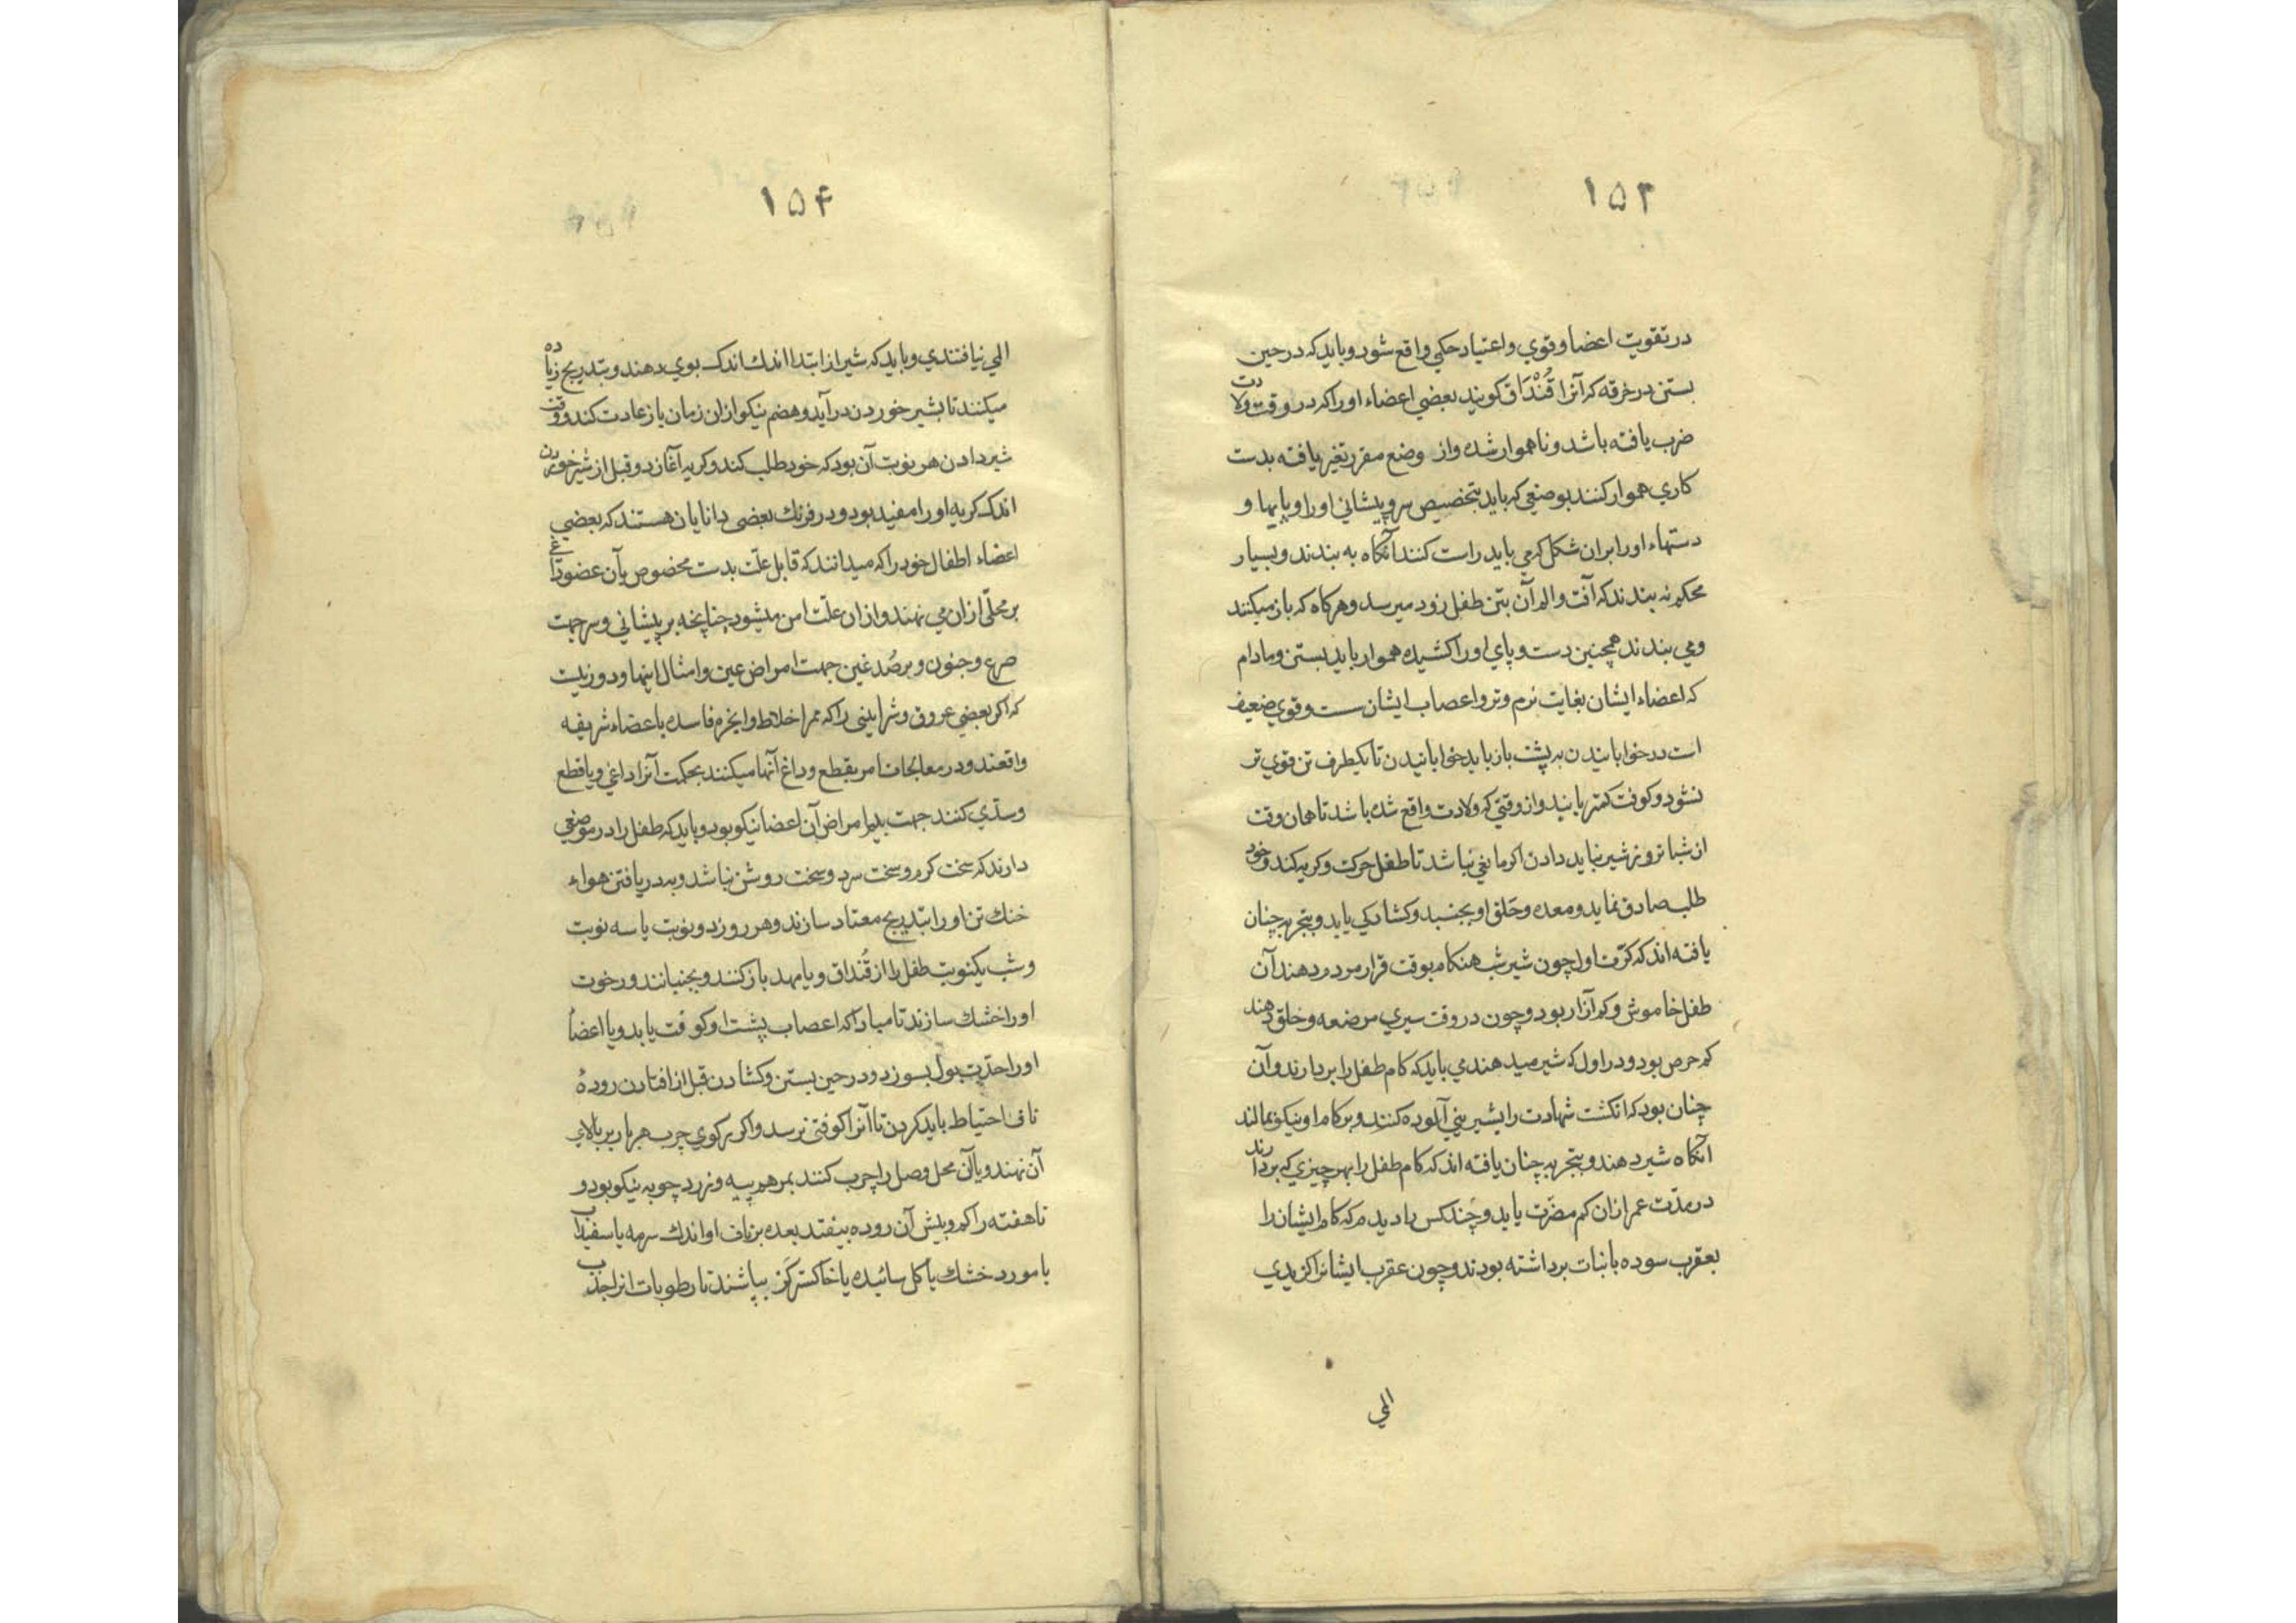 ۱۵۳
در تقویت اعضا و قوي و اعتیاد حکي واقع شود و باید که در حین
بستن در خرقه که آنرا قُنْدَاق کویند بعضي اعضاء اورا که در وقت ولادت
ضرب یافته باشد و ناهموار شده و از وضع مقرر تغیر یافته بدست
کاري هموار کنند بوضعي که باید بتخصیص سر و پیشاني اورا و پایها و
دستهاء اورا بران شکل که مي باید راست کنند آنکاه به بندند و بسیار
محکم نه بندند که آفت و الم آن بتن طفل زود میرسد و هرکاه که باز میکنند
و مي بندند همچنین دست و پاي اورا کشیده هموار باید بستن و مادام
که اعضاء ایشان بغایت نرم و تر و اعصاب ایشان سست و قوي ضعیف
است در خوابانیدن به پشت باز باید خوابانیدن تا یکطرف تن قوي تر
نشود و کوفت کمتر یابند و از وقتي که ولادت واقع شده باشد تا همان وقت
از شبانروز شیر نباید دادن اکر مانعي نباشد تا طفل حرکت و کریه کند و خود
طلب صادق نماید و معده و حلق او بجنبد و کشادکي یابد و بتجربه چنان
یافته اند که کرّت اول چون شیر شب هنکام بوقت قرار مردم دهند آن
طفل خاموش و کم آزار بود و چون در وقت سیري مرضعه و خلق دهند
کم حرص بود و در اول که شیر میدهند مي باید که کام طفل را بردارند و آن
چنان بود که انکشت شهادت را بشیریني آلوده کنند و بر کام او نیکو بمالند
آنکاه شیر دهند و بتجربه چنان یافته اند که کام طفل را بهر چیزي که بردارند
در مدّت عمر ازان کم مضرّت یابد و چند کس را دیدم که کام ایشان را
بعقرب سوده با نبات برداشته بودند و چون عقرب ایشانرا کزیدي
المي
۱۵۴
المي نیافتندي و باید که شیر از ابتدا اندك اندك بوي دهند و بتدریج زیاده
میکنند تا بشیر خوردن درآید و هضم نیکو ازان زمان باز عادت کند و وقت
شیر دادن هر نوبت آن بود که خود طلب کند و کریه آغازد و قبل از شیر خوردن
اندك کریه اورا مفید بود و در فرنك بعضي دانایان هستند که بعضي
اعضاء اطفال خود را که میدانند که قابل علّت بدست مخصوص بآن عضو داغي
بر محلّي ازان مي نهند و ازان علّت امن میشود چنانچه بر پیشاني و سر جهت
صرع و جنون و بر صُدغین جهت امراض عین و امثال اینها و دور نیست
که اکر بعضي عروق و شرایینی را که ممر اخلاط و ابخره فاسده باعضاء شریفه
واقعند و در معالجات امر بقطع و داغ آنها میکنند بحکمت آنرا داغي و یا قطع
و سدّي کنند جهت امراض آن اعضا نیکو بود و باید که طفل را در موضعي
دارند که سخت کرم و سخت سرد و سخت روشن نباشد و به دریافتن هواء
خنك تن اورا بتدریج معتاد سازند و هر روز دو نوبت یا سه نوبت
و شب یکنوبت طفل را از قُنداق و یا مهد باز کنند و بجنبانند و رخوت
اورا خشك سازند تا مبادا که اعصاب پشت او کوفت یابد و یا اعضا
اورا حدّت بول بسوزد و در حین بستن و کشادن قبل از افتادن رودهٔ
ناف احتیاط باید کردن تا آنرا کوفتي نرسد و اکر رکوي چرب هر بار بر بالاي
آن نهند و یا آن محل وصل را چرب کنند بمرهم پیه و زرد چوبه نیکو بود و
تا هفته را کم و بیش آن روده بیفتد بعده بر ناف او اندك سرمه یا سفیداب
یا مورد خشك یا کل سائیده یا خاکستر کز بپاشند تا رطوبات انرا جذب